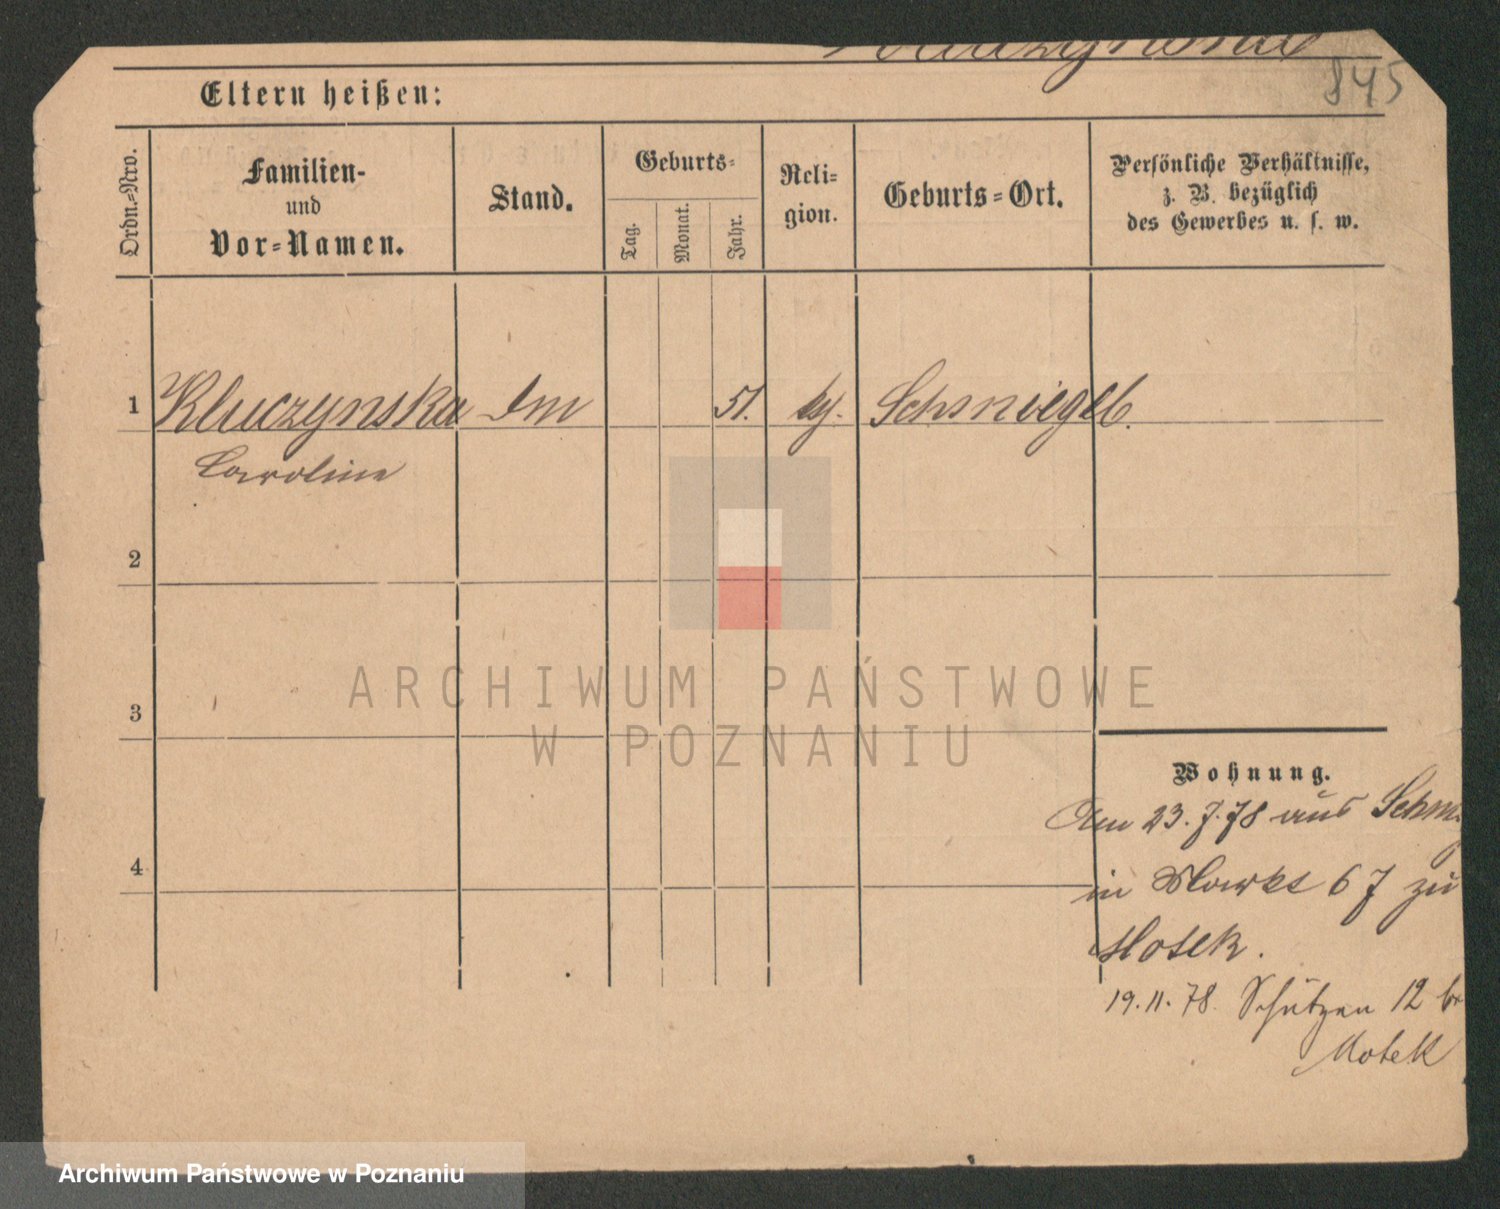 845
Eltern heißen:
Ordn.-Nro.
Familien-
und
Vor-Namen.
Stand.
Geburts-
Tag.
Monat.
Jahr.
Reli-
gion.
Geburts-Ort.
Persönliche Verhältnisse,
z. B. bezüglich
des Gewerbes u. s. w.
1 Kluczynska 51. Schmiegel
Caroline
2
3
4
Wohnung.
Am 23.7.78 aus Schm.
in Markt 67 zu
Motek.
19.11.78. Schützen 12 b.
Motek
ARCHIWUM PAŃSTWOWE
W POZNANIU
Archiwum Państwowe w Poznaniu